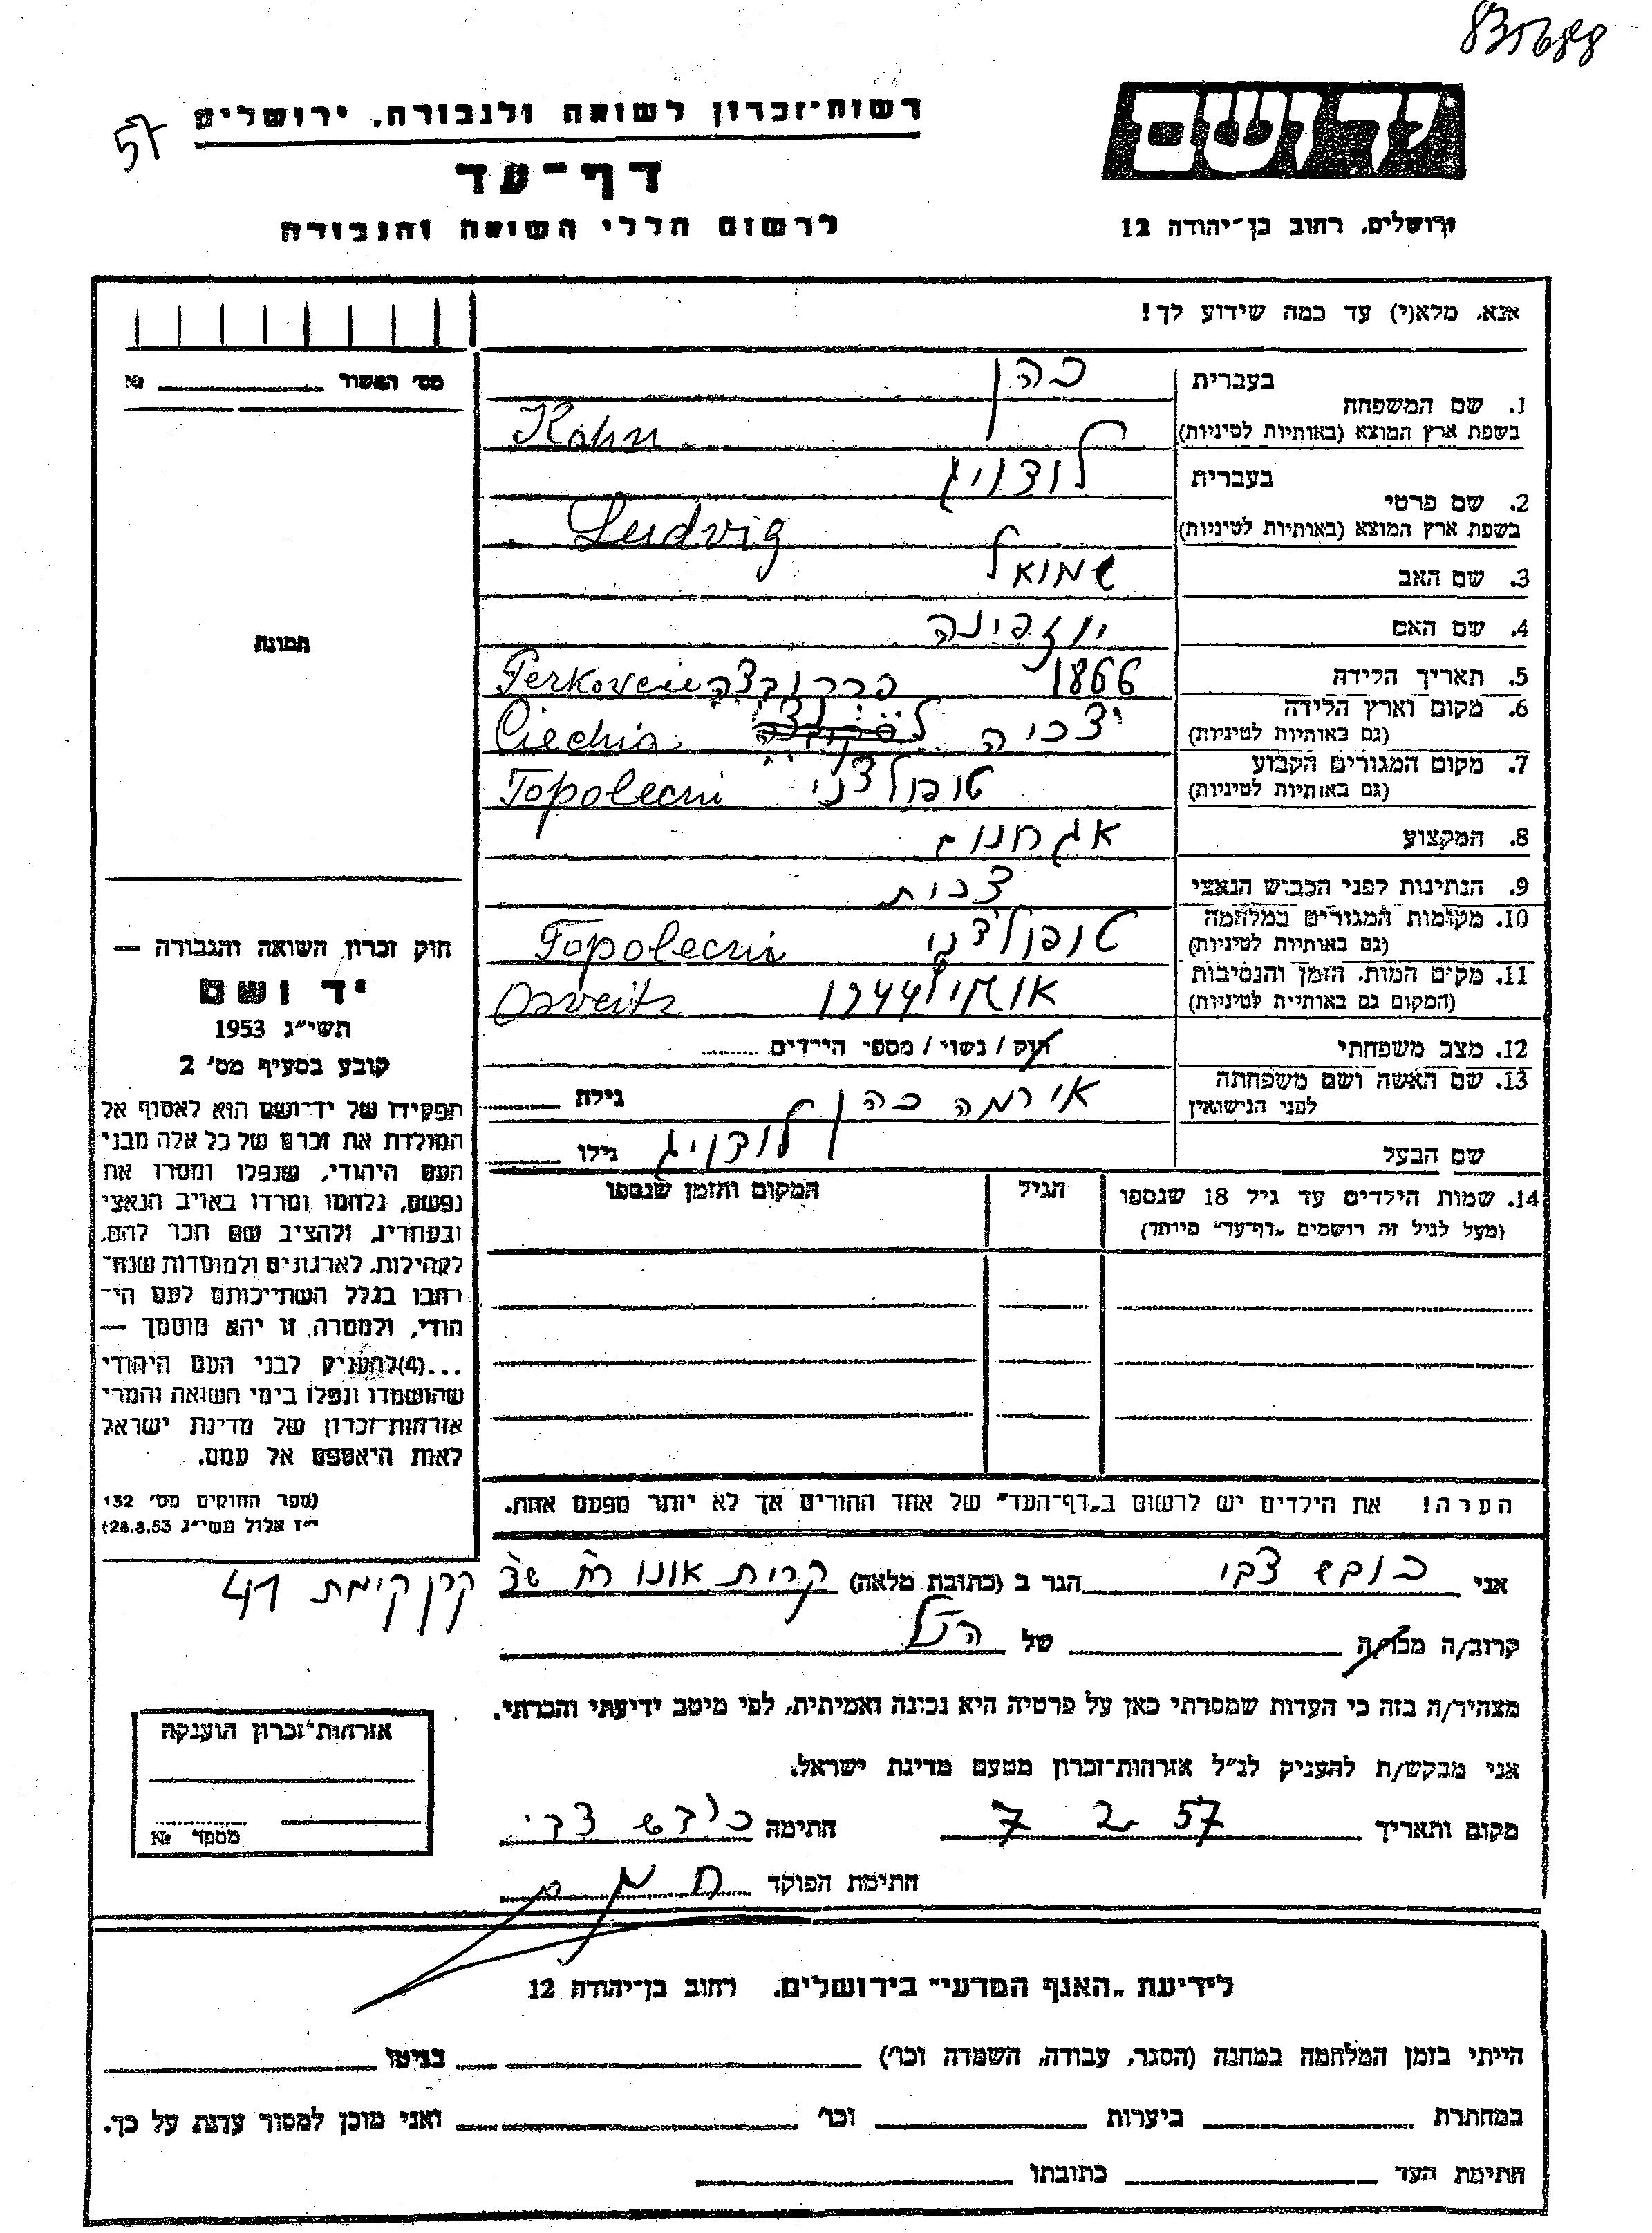 835688
57
רשות־זכרון לשואה ולגבורה, ירושלים
דף־עד
לרשום חללי השואה והגבורה
ידושם
ירושלים, רחוב בן־יהודה 12
אנא, מלא(י) עד כמה שידוע לך!
מס' האשור № 
בעברית כהן
1. שם המשפחה
בשפת ארץ המוצא (באותיות לטיניות) Kohn
בעברית לודויג
2. שם פרטי
בשפת ארץ המוצא (באותיות לטיניות) Ludvig
3. שם האב שמואל
4. שם האם יוזפינה
תמונה
5. תאריך הלידה 1866
6. מקום וארץ הלידה פרקובצה Perkovcie
(גם באותיות לטיניות) צ'כיה Ciechia
7. מקום המגורים הקבוע
(גם באותיות לטיניות) טופולצני Topolecni
8. המקצוע
9. הנתינות לפני הכבוש הנאצי צכית
10. מקומות המגורים במלחמה
(גם באותיות לטיניות) טופולצני Topolecni
11. מקום המות, הזמן והנסיבות
(המקום גם באותיות לטיניות) 1944 Osveitz
12. מצב משפחתי רוק / נשוי / מספר הילדים
13. שם האשה ושם משפחתה
לפני הנישואין אירמה כהן גילה
שם הבעל לודויג גילו
14. שמות הילדים עד גיל 18 שנספו הגיל המקום והזמן שנספו
(מעל לגיל זה רושמים „דף־עד" מיוחד)
הערה! את הילדים יש לרשום ב„דף־העד" של אחד ההורים אך לא יותר מפעם אחת.
חוק זכרון השואה והגבורה —
יד ושם
תשי"ג 1953
קובע בסעיף מס' 2
תפקידו של יד־ושם הוא לאסוף אל
המולדת את זכרם של כל אלה מבני
העם היהודי, שנפלו ומסרו את
נפשם, נלחמו ומרדו באויב הנאצי
ובעוזריו, ולהציב שם וזכר להם,
לקהילות, לארגונים ולמוסדות שנח־
רבו בגלל השתייכותם לעם הי־
הודי, ולמטרה זו יהא מוסמך —
...(4)להעניק לבני העם היהודי
שהושמדו ונפלו בימי השואה והמרי
אזרחות־זכרון של מדינת ישראל
לאות היאספם אל עמם.
(ספר החוקים מס' 132
י"ז אלול תשי"ג 28.8.53)
אני כובש צבי הגר ב (כתובת מלאה) קרית אונו קרן קימת 41
קרוב/ה מכר/ה של הנ"ל
מצהיר/ה בזה כי העדות שמסרתי כאן על פרטיה היא נכונה ואמיתית, לפי מיטב ידיעתי והכרתי.
אני מבקש/ת להעניק לנ"ל אזרחות־זכרון מטעם מדינת ישראל.
מקום ותאריך 7 2 57 חתימה כובש צבי
חתימת הפוקד
אזרחות־זכרון הוענקה
מספר №
לידיעת „האגף המדעי" בירושלים, רחוב בן־יהודה 12
הייתי בזמן המלחמה במחנה (הסגר, עבודה, השמדה וכו') בגיטו
במחתרת ביערות וכו' ואני מוכן למסור עדות על כך.
חתימת העד כתובתו